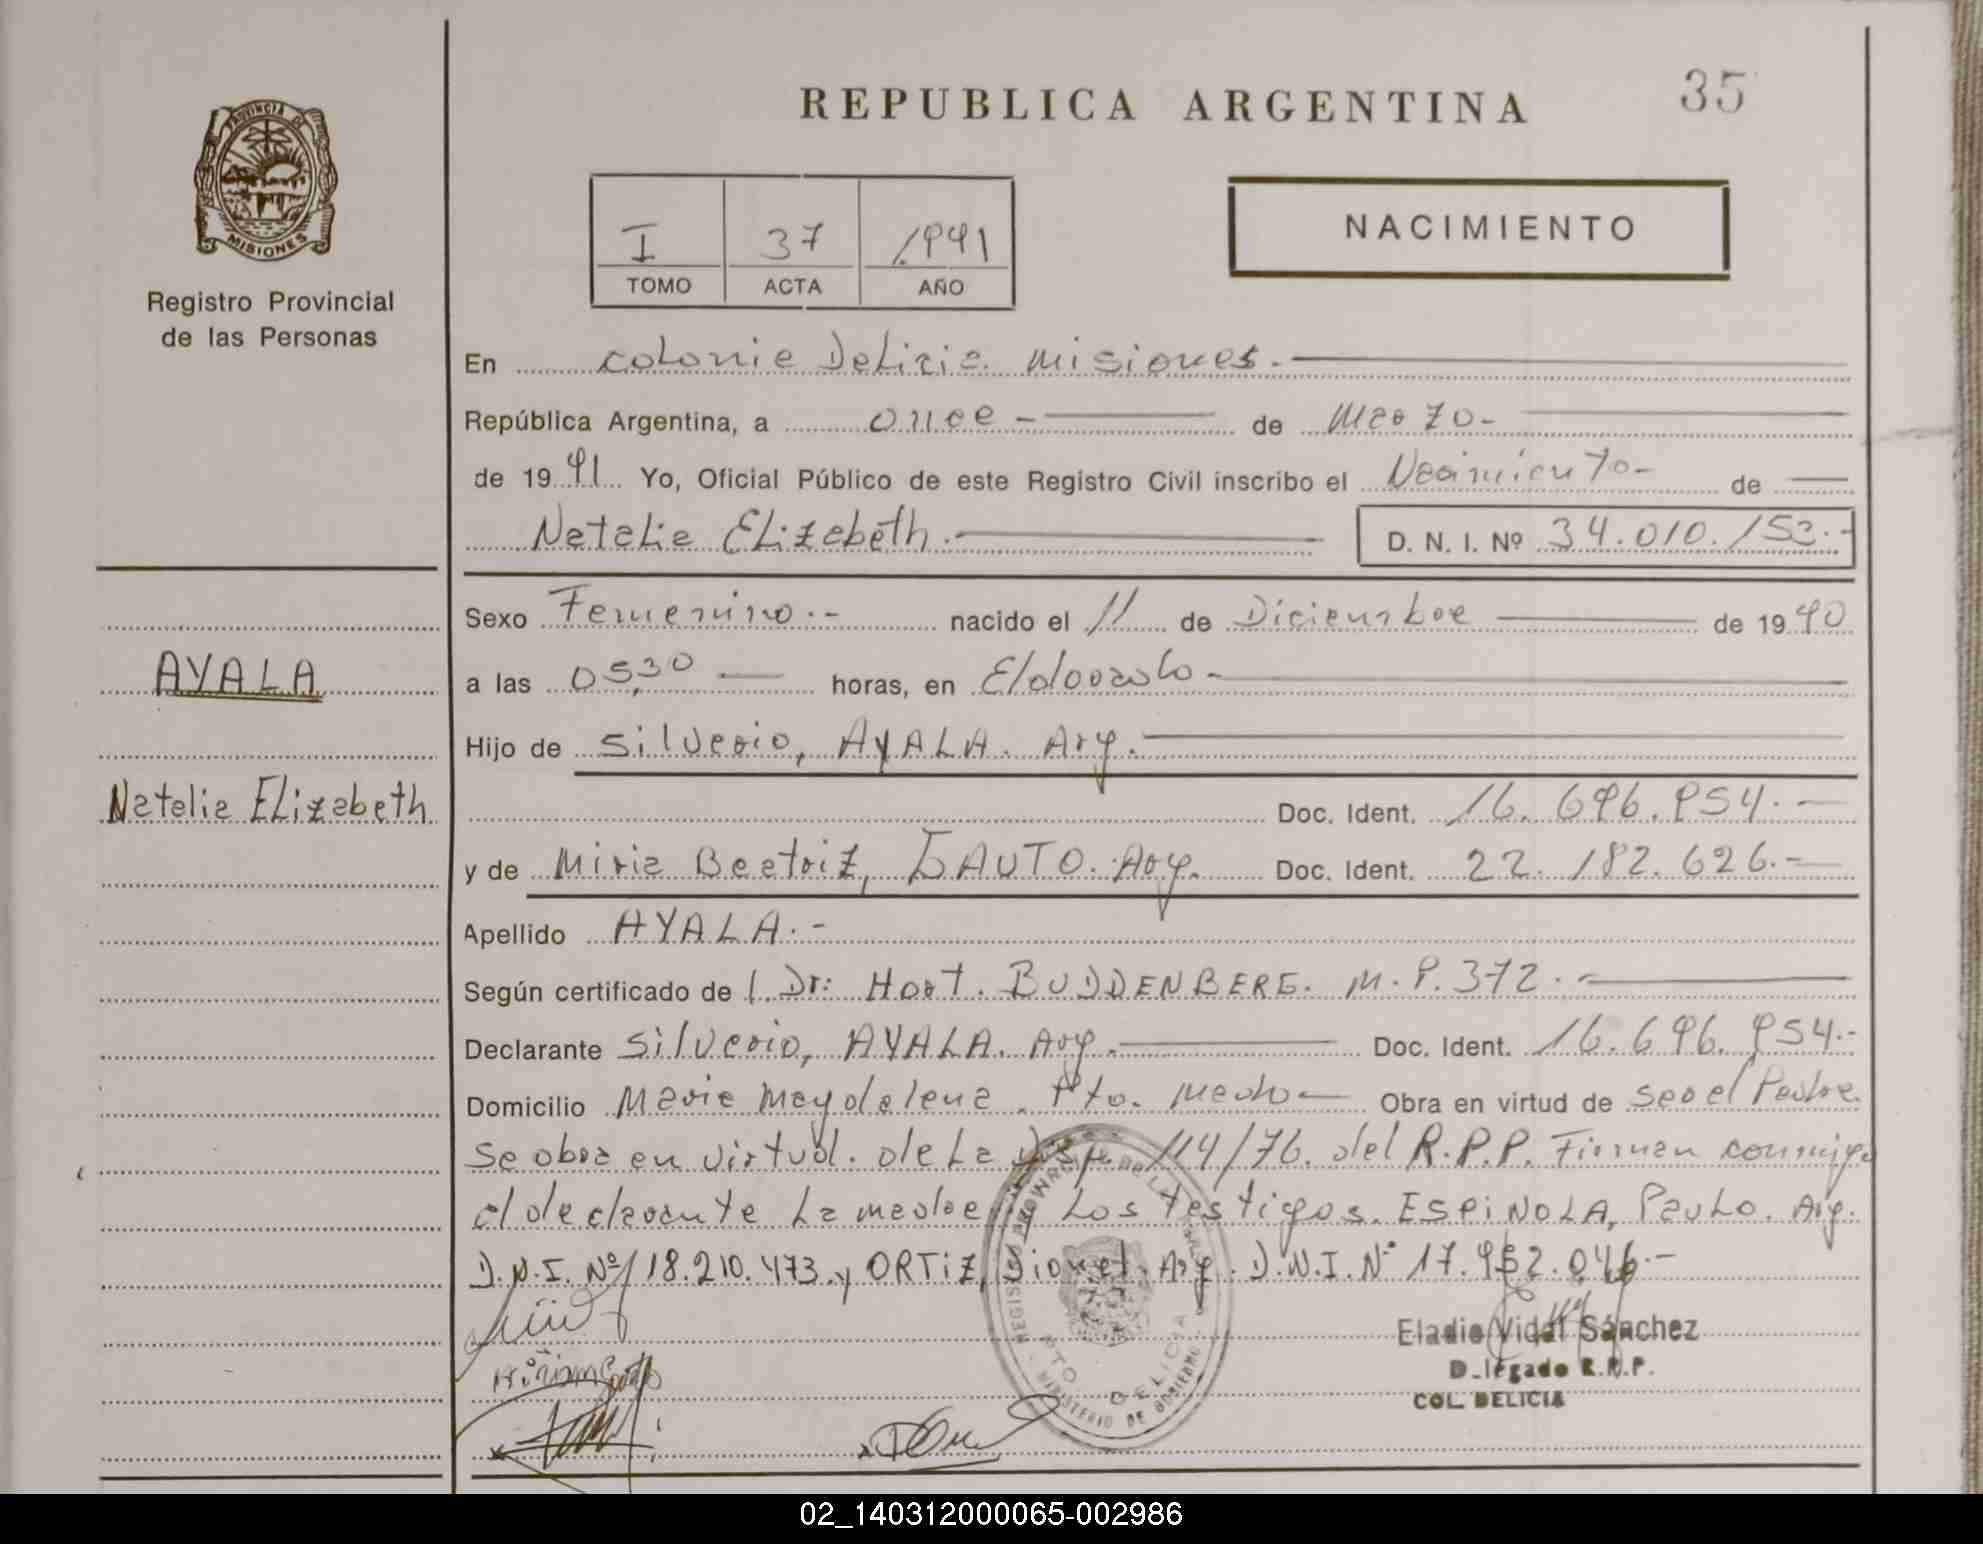 REPUBLICA ARGENTINA
35
PROVINCIA DE
MISIONES
Registro Provincial
de las Personas
I 37 1991
TOMO ACTA AÑO
NACIMIENTO
En colonia Delicia. Misiones.
República Argentina, a once - de Marzo -
de 19 91 Yo, Oficial Público de este Registro Civil inscribo el Nacimiento - de
Natalia Elizabeth. D. N. I. Nº 34.010.153.-
Sexo Femenino.- nacido el 11 de Diciembre de 19 90
a las 05,30 horas, en Eldorado -
AYALA
Hijo de Silverio, AYALA. Arg.
Natalia Elizabeth
Doc. Ident. 16.696.954.-
y de Miria Beatriz, GAUTO. Arg. Doc. Ident. 22.182.626.-
Apellido AYALA.-
Según certificado de l. Dr: Hort. BUDDENBERG. M.P. 372.-
Declarante Silverio, AYALA. Arg. Doc. Ident. 16.696.954.-
Domicilio Maria Magdalena. Pto. Mado - Obra en virtud de ser el Padre.
Se obra en virtud. de La Disp. 114/76. del R.P.P. Firman conmigo
el declarante La madre y Los testigos. ESPINOLA, Paulo. Arg.
D.N.I. Nº 18.210.473. y ORTIZ, Dionel. Arg. D.N.I. Nº 17.952.046.-
Eladio Vidal Sánchez
D_legado R.P.P.
COL. DELICIA
MINISTERIO DE GOBIERNO
DELICIA
02_140312000065-002986